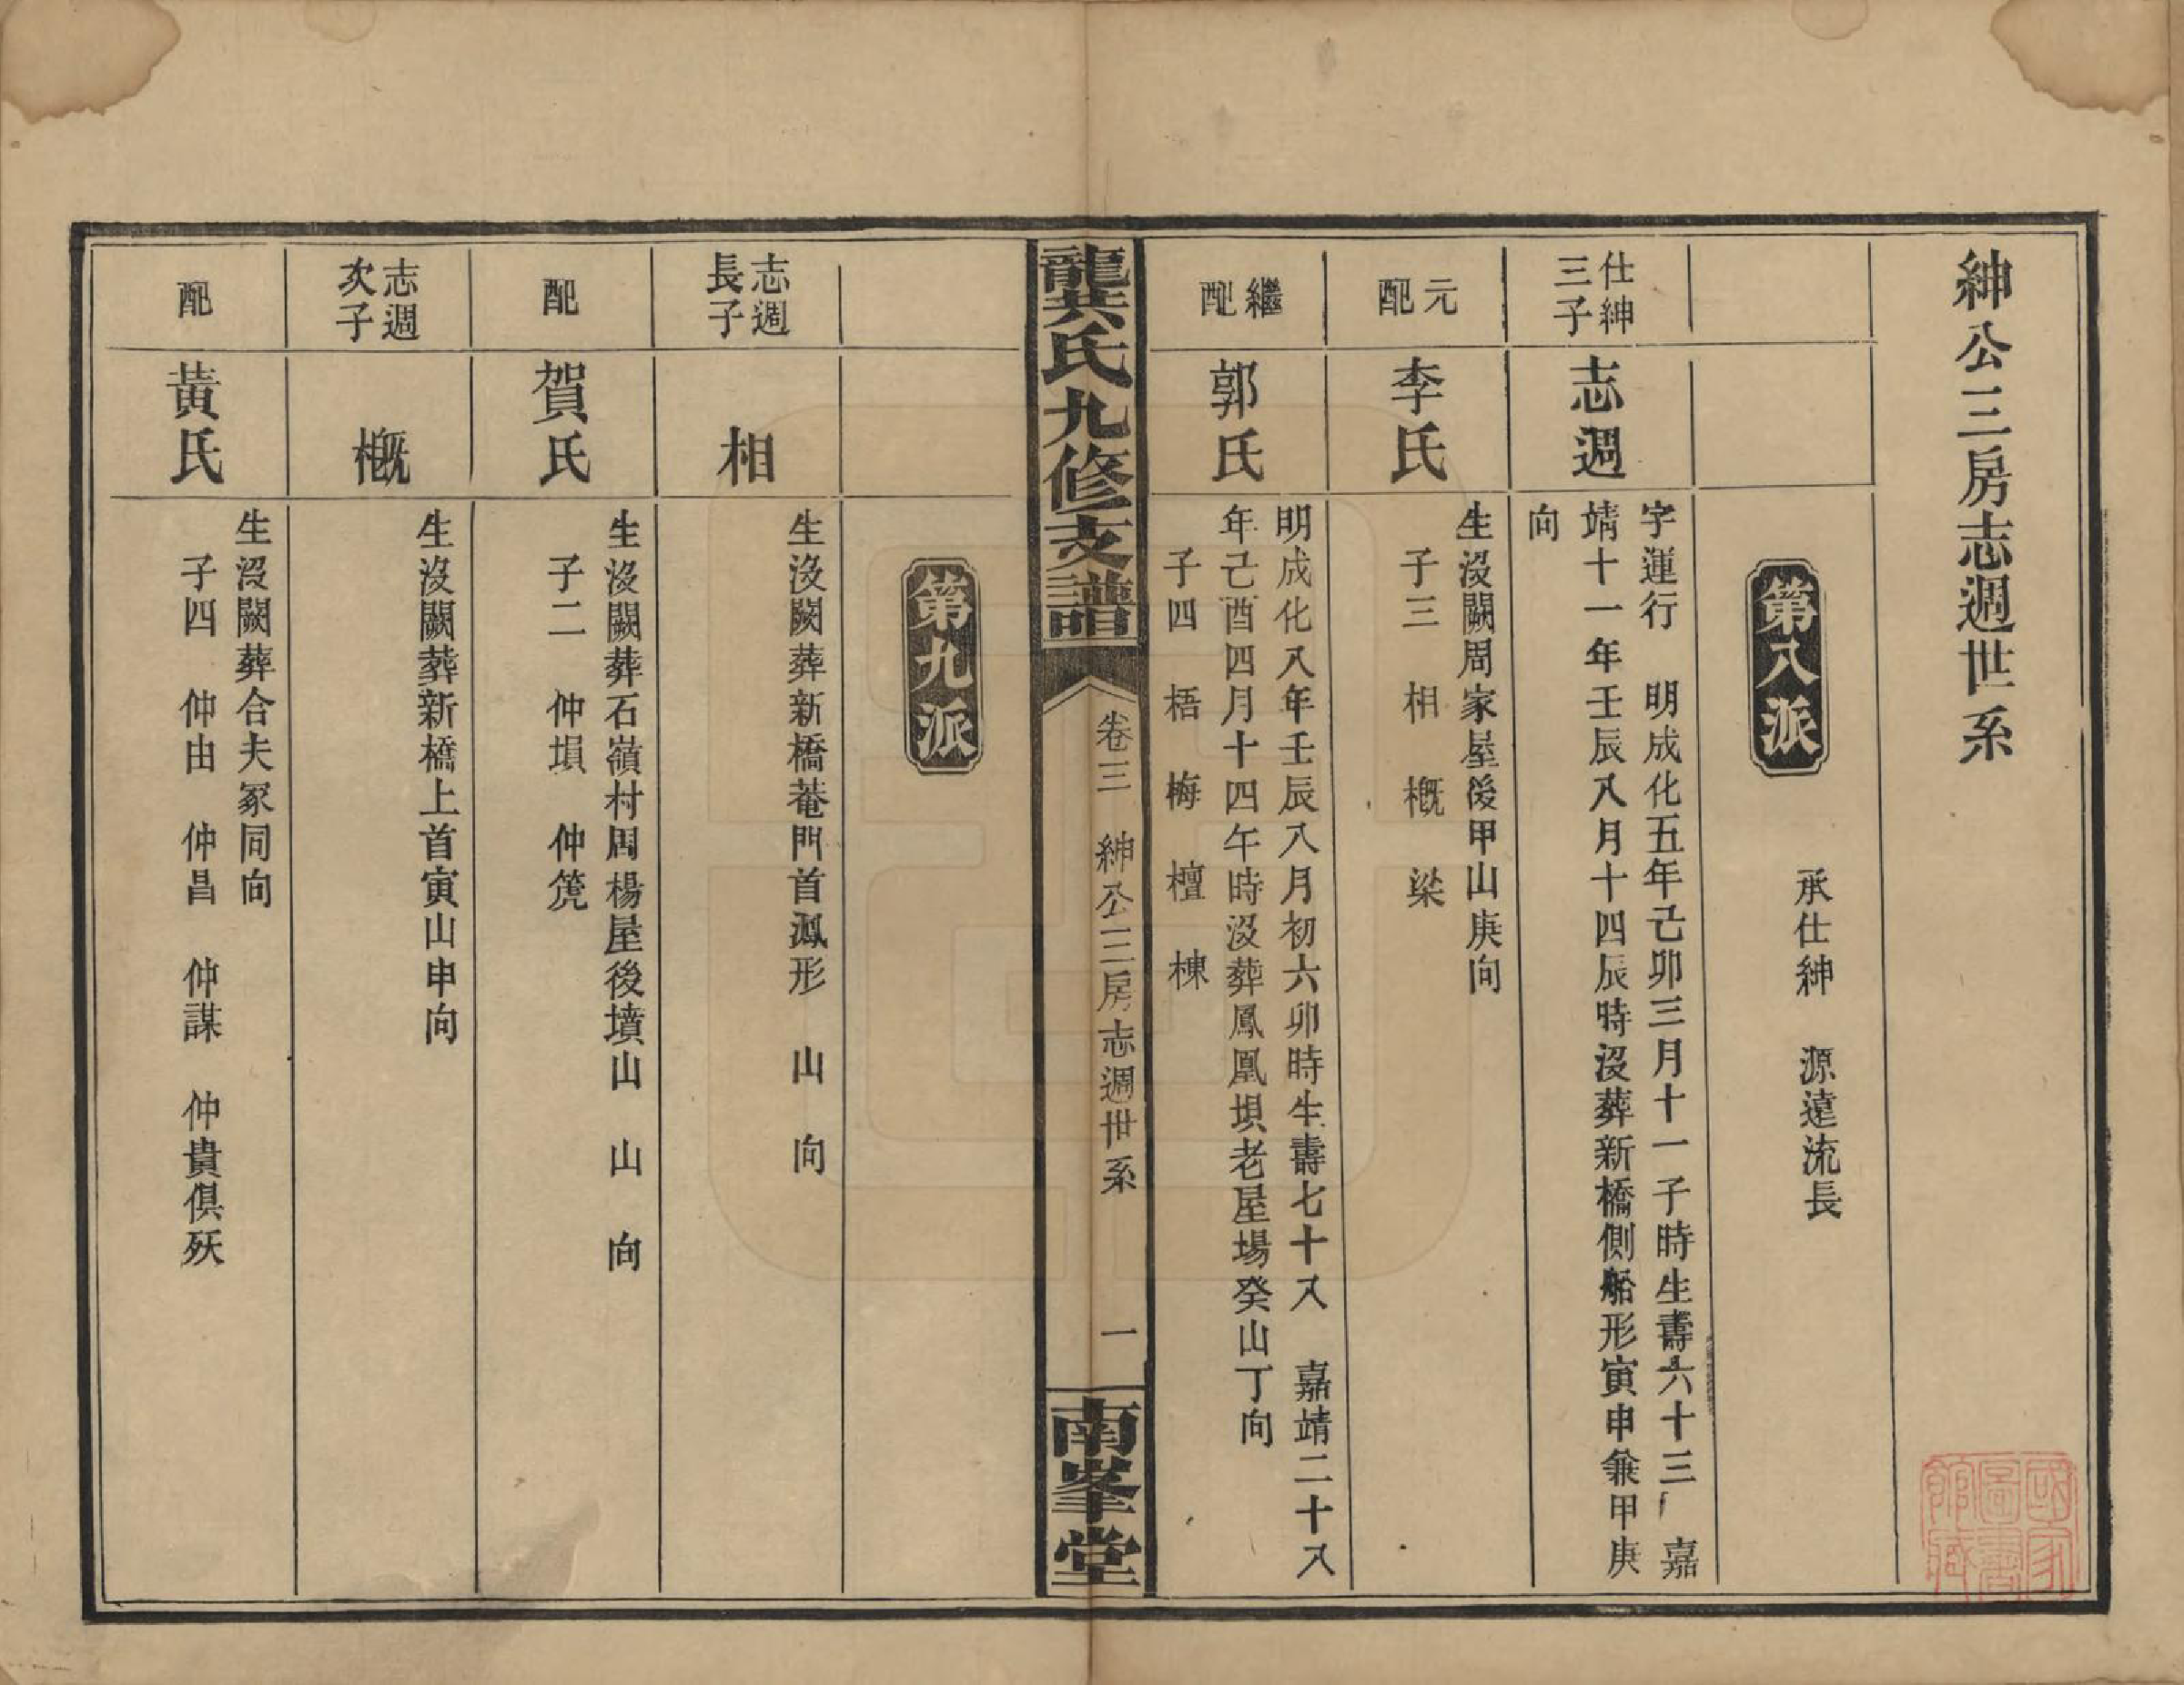 紳公三房志週世系
第八派
承仕紳　源遠流長
仕紳
三子
志週
字運行　明成化五年己卯三月十一子時生壽六十三　嘉
靖十一年壬辰八月十四辰時沒葬新橋側船形寅申兼甲庚
向
元
配
李氏
生沒闕周家屋後甲山庚向
子三　相　概　梁
繼
配
郭氏
明成化八年壬辰八月初六卯時生壽七十八　嘉靖二十八
年己酉四月十四午時沒葬鳳凰垻老屋場癸山丁向
子四　梧　梅　檀　棟
龍共氏九修支譜
卷三　紳公三房志週世系　一
南峯堂
第九派
志週
長子
相
生沒闕葬新橋菴門首鳳形　山　向
配
賀氏
生沒闕葬石嶺村周楊屋後墳山　山　向
子二　仲塤　仲箎
志週
次子
概
生沒闕葬新橋上首寅山申向
配
黃氏
生沒闕葬合夫冢同向
子四　仲由　仲昌　仲謀　仲貴俱殀
國家
圖書
館藏